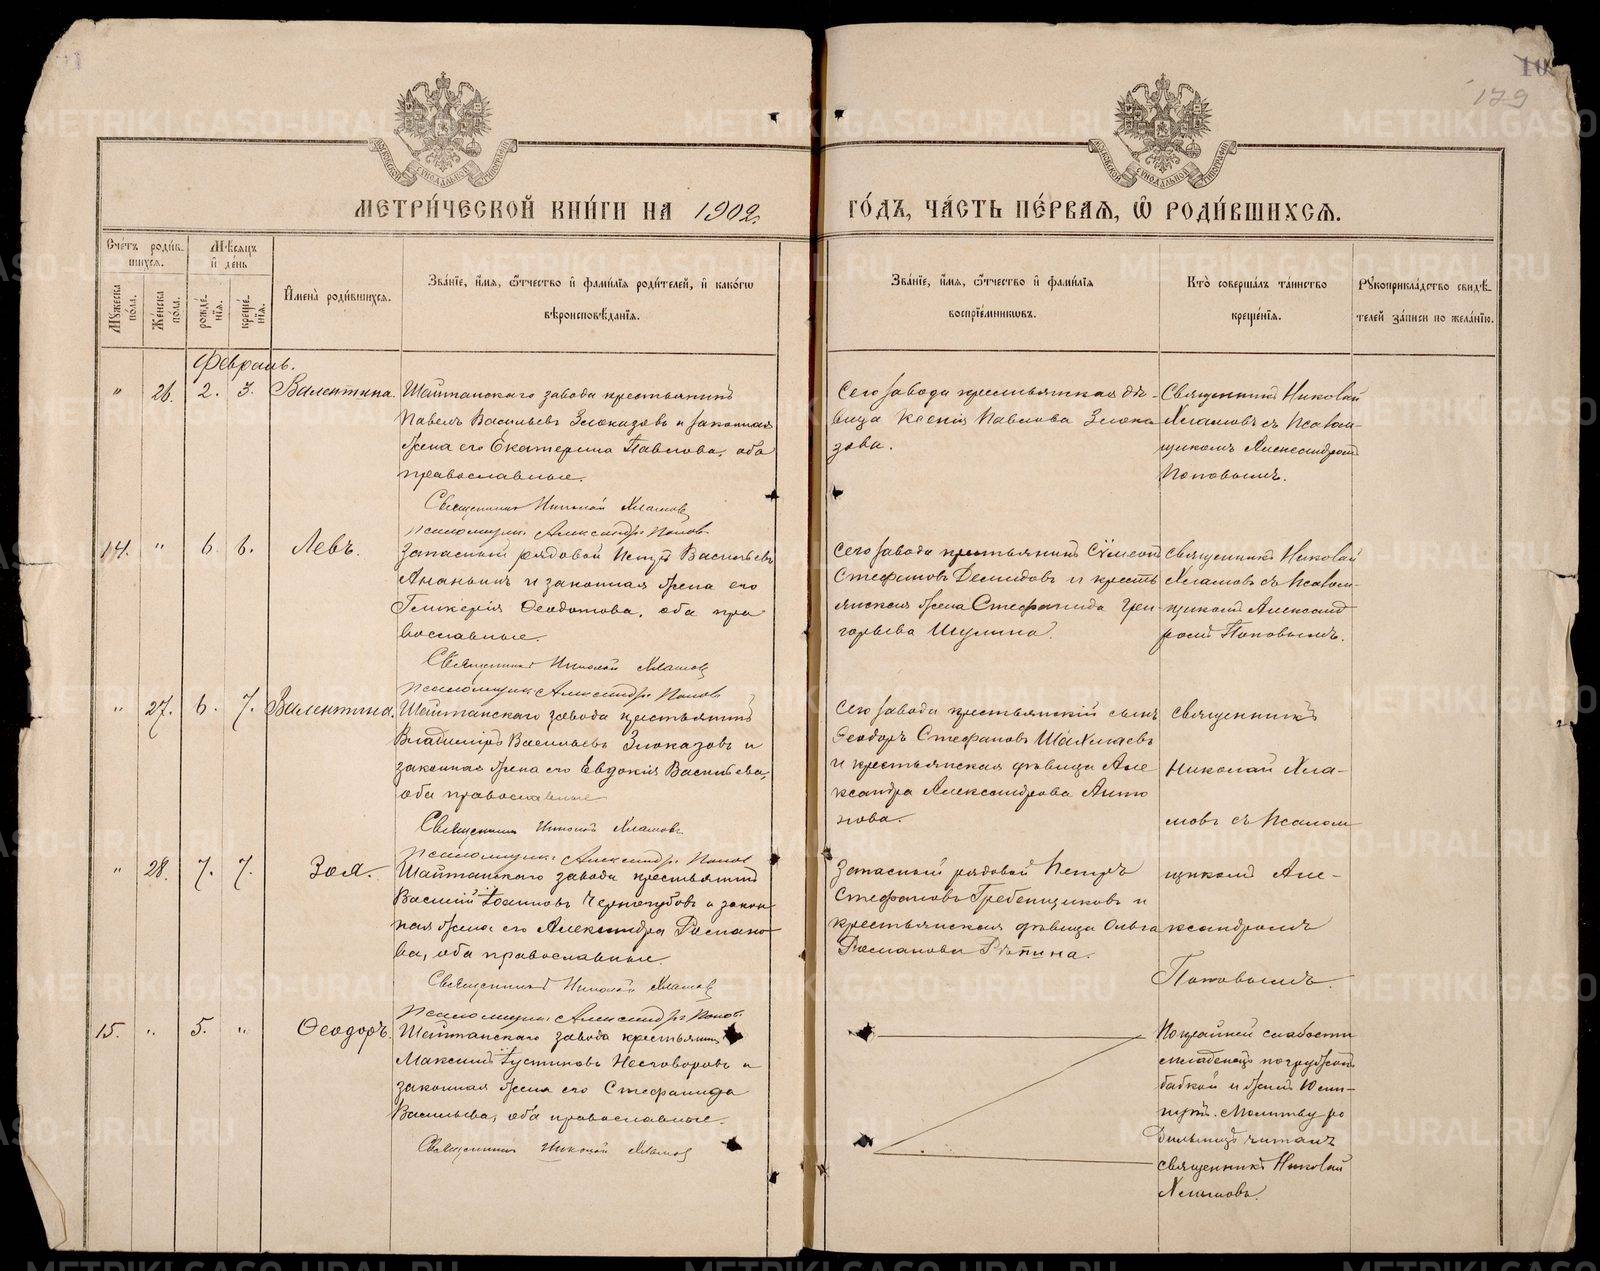 10
179
МЕТРИ́ЧЕСКОЙ КНИ́ГИ НА 1902
ГО́ДЪ, ЧА́СТЬ ПЕ́РВАЯ, Ѡ РОДИ́ВШИХСЯ.
Сче́тъ роди́в-
шихся.
Мꙋ́жеска по́ла.
Же́нска по́ла.
Мѣ́сяцъ
и де́нь
рожде́-
нія.
креще́-
нія.
Имена̀ роди́вшихся.
Зва́ніе, и́мя, ѻ҆́тчество и фами́лія роди́телей, и како́гѡ
вѣроисповѣ́данія.
Зва́ніе, и́мя, ѻ҆́тчество и фами́лія
воспріе́мникѡвъ.
Кто̀ соверша́лъ та́инство
креще́нія.
Рꙋкоприкла́дство свидѣ́-
телей за́писи по жела́нію.
Февраль.
" 26. 2. 3. Валентина.
Шайтанскаго завода крестьянинъ
Павелъ Васильевъ Злоказовъ и законная
жена его Екатерина Павлова, оба
православные.
Священникъ Николай Хламовъ
псаломщикъ Александръ Попов
Сего завода крестьянская дѣ-
вица Ксенія Павлова Злока
зова.
Священникъ Николай
Хламовъ съ псалом-
щикомъ Александромъ
Поповымъ.
14. " 6. 6. Левъ.
Запасный рядовой Петръ Васильевъ
Ананьинъ и законная жена его
Гликерія Ѳеодотова, оба пра
вославные.
Священникъ Николай Хламовъ
псаломщикъ Александръ Попов
Сего завода крестьянинъ Сѵмеонъ
Стефановъ Демидовъ и кресть
янская жена Стефанида Гри-
горьева Шулина.
Священникъ Николай
Хламовъ съ псалом-
щикомъ Александ
ромъ Поповымъ.
" 27. 6. 7. Валентина.
Шайтанскаго завода крестьянинъ
Владиміръ Васильевъ Злоказовъ и
законная жена его Евдокія Васильева,
оба православные
Священникъ Николай Хламовъ
псаломщикъ Александръ Попов
Сего завода крестьянскій сынъ
Ѳеодоръ Стефановъ Шахмаевъ
и крестьянская дѣвица Але
ксандра Александрова Анто
нова.
Священникъ
Николай Хла-
мовъ съ псалом
" 28. 7. 7. Зоя.
Шайтанскаго завода крестьянинъ
Василій Іоанновъ Черногубовъ и закон
ная жена его Александра Романо-
ва, оба православные.
Священникъ Николай Хламовъ
псаломщикъ Александръ Попов
Запасный рядовой Петръ
Стефановъ Гребенщиковъ и
крестьянская дѣвица Ольга
Романова Рѣпина.
щикомъ Але-
ксандромъ
Поповымъ.
15. " 5. " Ѳеодоръ.
Шайтанскаго завода крестьянинъ
Максимъ Іустиновъ Несговоровъ и
законная жена его Стефанида
Васильева, оба православные.
Священникъ Николай Хламовъ
По крайней слабости
младенецъ погружонъ
бабкой и
Молитву ро
дильницѣ читалъ
священникъ Николай
Хламовъ.